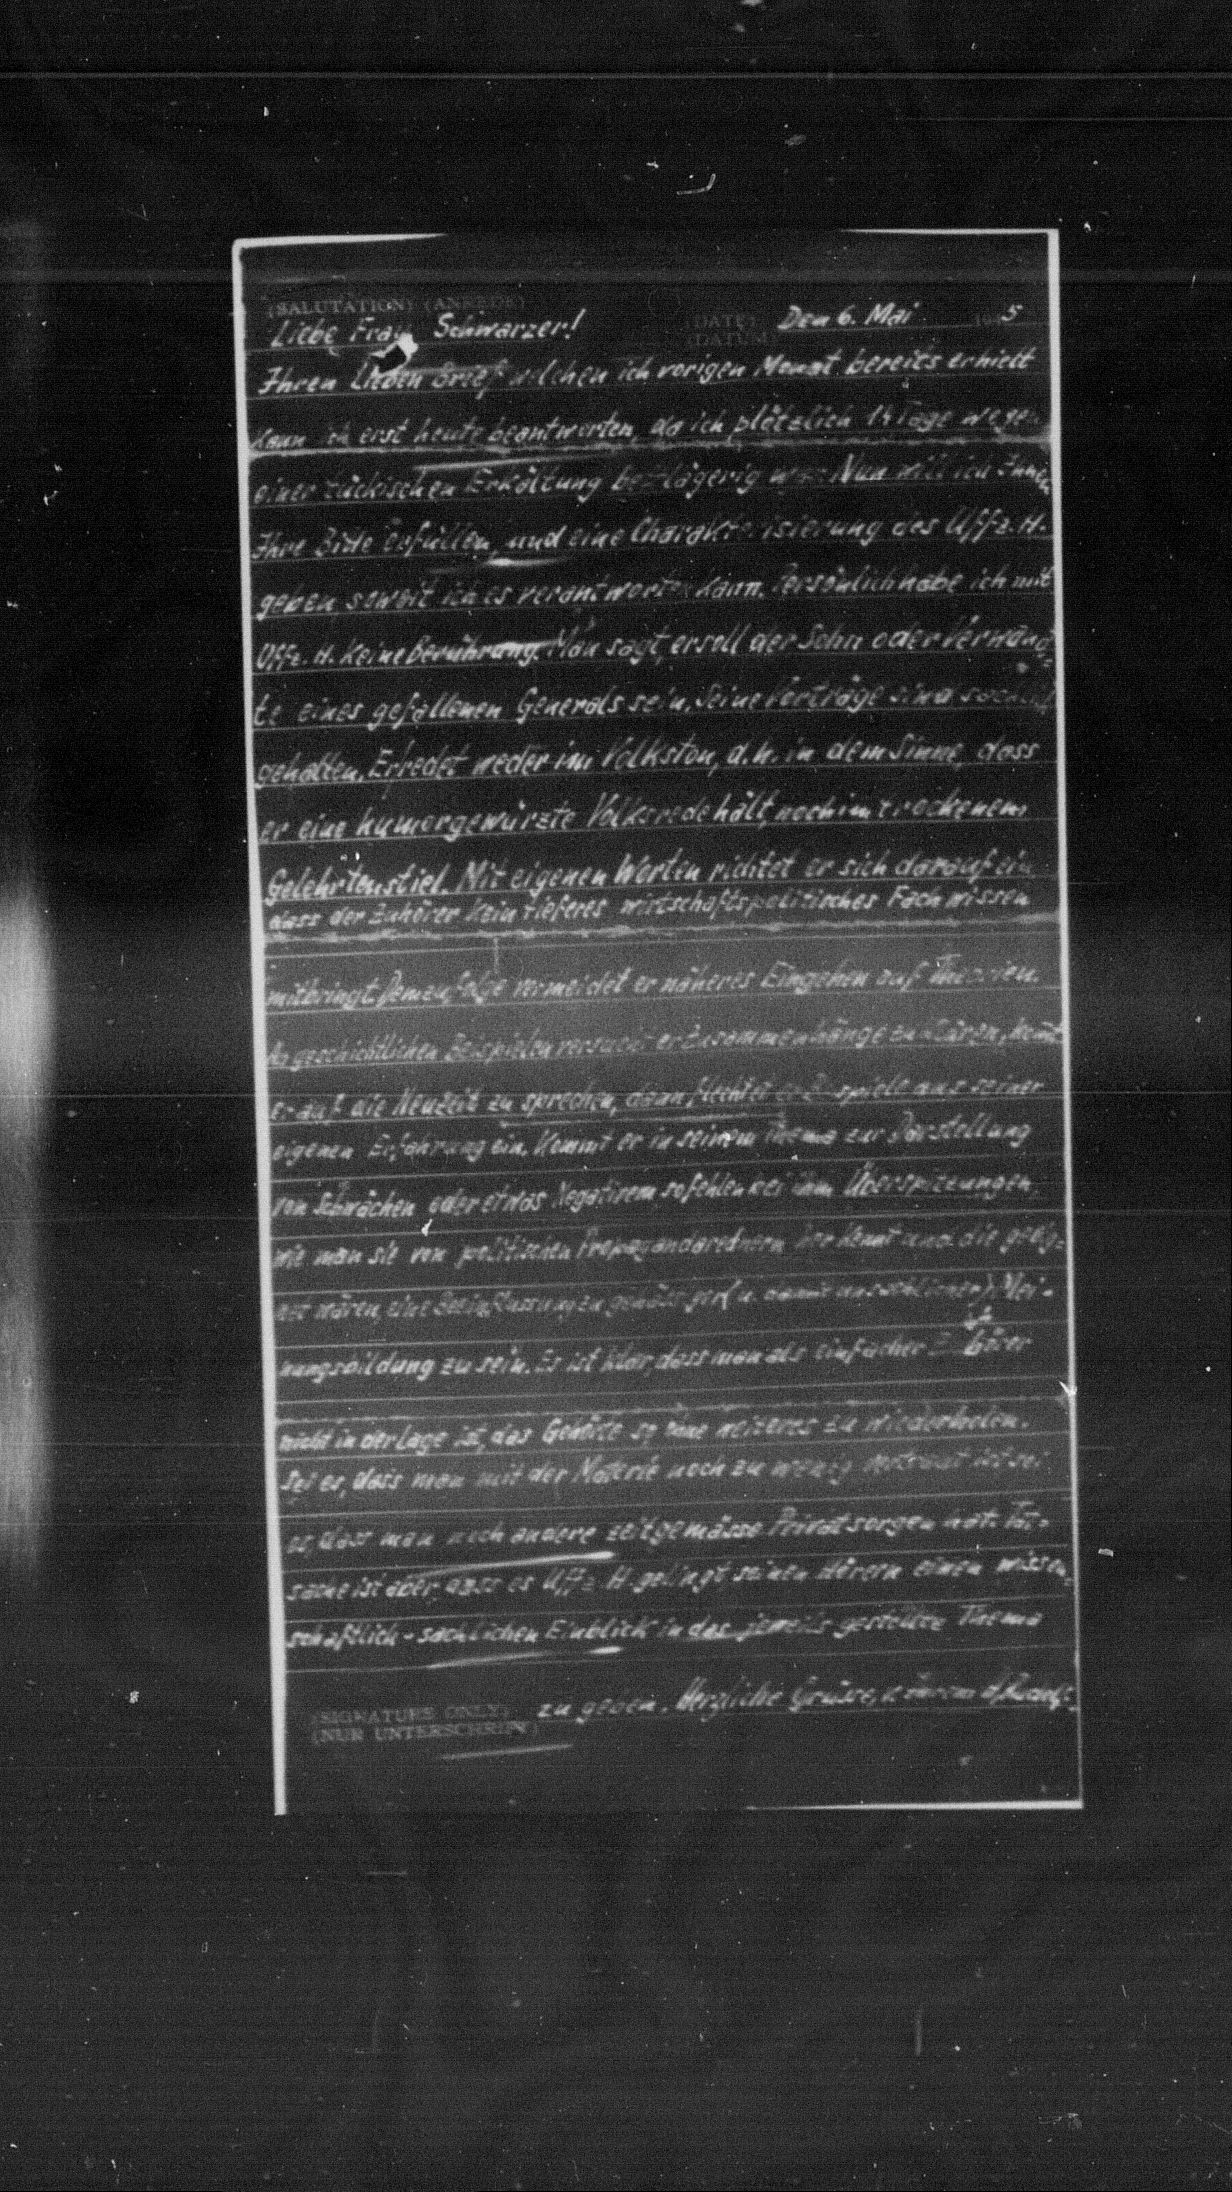 (SALUTATION) (ANREDE)
Liebe Frau Schwarzer! (DATE) Den 6. Mai 5
(DATUM)
Ihren lieben Brief welchen ich vorigen Monat bereits erhielt
kann ich erst heute beantworten, da ich plötzlich 14 Tage wegen
einer tückischen Erkältung bettlägerig war. Nun will ich Ihnen
Ihre Bitte erfüllen, und eine Charakterisierung des Uffz. H.
geben soweit ich es verantworten kann. Persönlich habe ich mit
Uffz. H. keine Berührung. Man sagt, er soll der Sohn oder Verwand-
te eines gefallenen Generals sein. Seine Vorträge sind sachlich
gehalten. Er redet weder im Volkston, d.h. in dem Sinne, dass
er eine humorgewürzte Volksrede hält, noch im trockenem
Gelehrtenstiel. Mit eigenen Worten richtet er sich darauf ein
dass der Zuhörer kein tieferes wirtschaftspolitisches Fachwissen
mitbringt. Demzufolge vermeidet er näheres Eingehen auf Theorien.
An geschichtlichen Beispielen versucht er Zusammenhänge zu klären, kommt
er auf die Neuzeit zu sprechen, dann flechtet er Beispiele aus seiner
eigenen Erfahrung ein. Kommt er in seinem Thema zur Darstellung
von Schwächen oder etwas Negativem, so fehlen bei ihm Überspitzungen,
wie man sie von politischen Propagandarednern her kennt und die geeig-
net wären, eine Beeinflussung zu Mei-
nungsbildung zu sein. Es ist klar, dass man als einfacher Zuhörer
nicht in der Lage ist, das Gehörte so ohne weiteres zu wiederholen.
sei es, dass man mit der Materie noch zu wenig vertraut ist sei
es, dass man noch andere zeitgemässe Privatsorgen hat. Tat-
sache ist aber, dass es Uffz. H. gelingt, seinen Hörern einen wissen-
schaftlich-sachlichen Einblick in das jeweils gestellte Thema
zu geben. Herzliche Grüsse,
(SIGNATURE ONLY)
(NUR UNTERSCHRIFT)